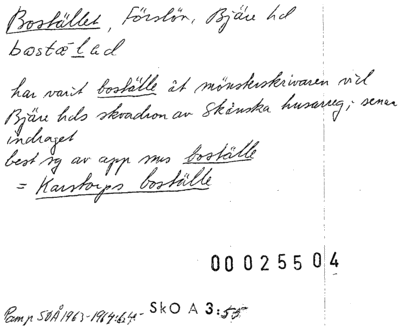 Bostället, Förslöv, Bjäre hd
bostæləd
har varit boställe åt mönsterskrivaren vid
Bjäre hds skvadron av Skånska husarreg; senare
indraget
best sg av app mus boställe
= Karstorps boställe
00025504
SOÅ 1963-1964:64. SkO A 3:55